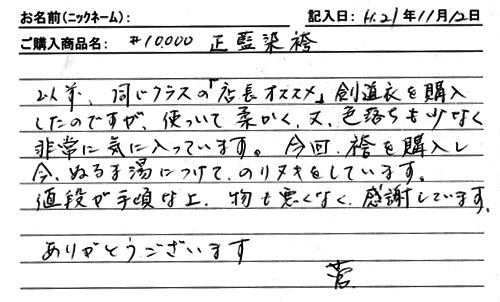 お名前(ニックネーム): 記入日: H.21年11月12日
ご購入商品名: #10,000 正藍染袴
以前、同じクラスの「店長オススメ」剣道衣を購入
したのですが、使っいて柔かく、又、色落ちも少なく
非常に気に入っています。今回、袴を購入し
今、ぬるま湯につけて、のりヌキをしています。
値段が手頃な上、物も悪くなく、感謝しています。
ありがとうございます
菅